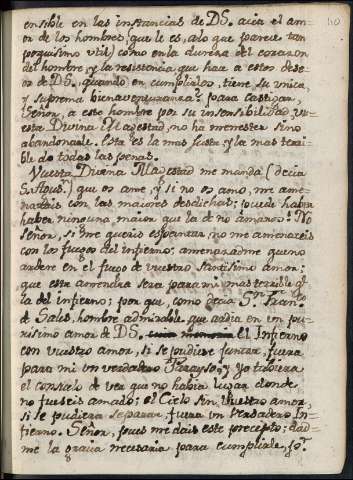 110
ensible en las instancias de DS. acia el am-
or de los hombres, que le es, alo que parece tan
poquisimo util; como en la dureza del corazon
del hombre, y la resistencia que hace a estos dese-
os de DS. quando en cumplirlos, tiene su unica,
y suprema bienaventuranza: para castigar,
Señor, a este hombre por su insensibilidad, vu-
estra Divina Magestad, no ha menester sino
abandonarle. Esta es la mas justa, y la mas terri-
ble de todas las penas.
Vuestra Divina Magestad me manda (decia
S. Agus.) que os ame, y si no os amo, me ame-
nazais con las maiores desdichas; puede haber
haber ninguna maior que la de no amaros? No
Señor, si me quereis espantar no me amenaceis
con los fuegos del infierno; amenazadme que no
ardere en el fuego de vuestro santissimo amor;
que esta amenaza sera para mi mas terrible q.
la del infierno; por que, como decia Sn. Fran.co
de Sales, hombre admirable que ardia en un pu-
risimo amor de DS. el Infierno
con vuestro amor, si se pudiese juntar, fuera
para mi un verdadero Parayso, y Yo tubiera
el consuelo de ver que no habia lugar donde
no fueseis amado; el Cielo sin vuestro amor,
si se pudiera separar, fuera un verdadero In-
fierno. Señor, pues me dais este precepto; dad-
me la gracia necesaria para cumplirle, pr.